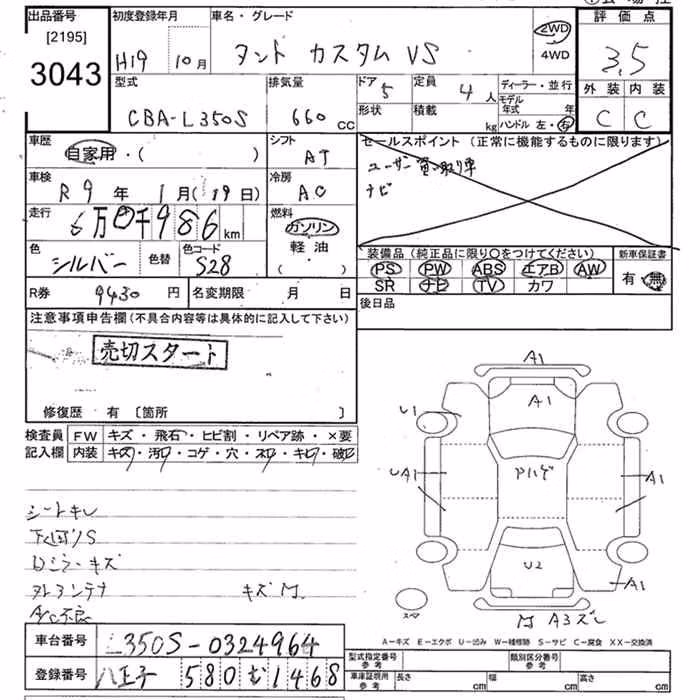 出品番号 初度登録年月 車名・グレード 評価点
[2195]
3043 H19 10月 タント カスタム VS 2WD 4WD 3.5
型式 排気量 ドア 定員 ディーラー・並行 外装 内装
CBA-L350S 660 CC 5 4人 モデル年式 年 C C
形状 積載 kg ハンドル 左・右
車歴 シフト セールスポイント (正常に機能するものに限ります)
自家用・( ) AT ユーザー買い取り車
車検 冷房 ナビ
R9年 1月(19日) AC
走行 燃料
6万0千986km ガソリン
色 色替 色コード 軽油
シルバー S28 ( ・ )
装備品(純正品に限り○をつけてください) 新車保証書
PS PW ABS エアB AW 有・無
SR ナビ TV カワ
R券 9430円 名変期限 月 日 後日品
注意事項申告欄(不具合内容等は具体的に記入して下さい)
売切スタート
修復歴 有 〔箇所 〕
検査員 FW キズ・飛石・ヒビ割・リペア跡・×要
記入欄 内装 キズ・汚れ・コゲ・穴・スレ・キレ・破れ
シートキレ
下回りS
Dミラーキズ
アンテナ キズ
A/C不良
A1
A1
U1
UA1
A1
U2
A1
A3
A−キズ E−エクボ U−凹み W−補修跡 S−サビ C−腐食 XX−交換済
車台番号 L350S-0324964
型式指定番号 参考 類別区分番号 参考
登録番号 八王子 580 む 1468
車庫証明用 参考 長さ cm 幅 cm 高さ cm